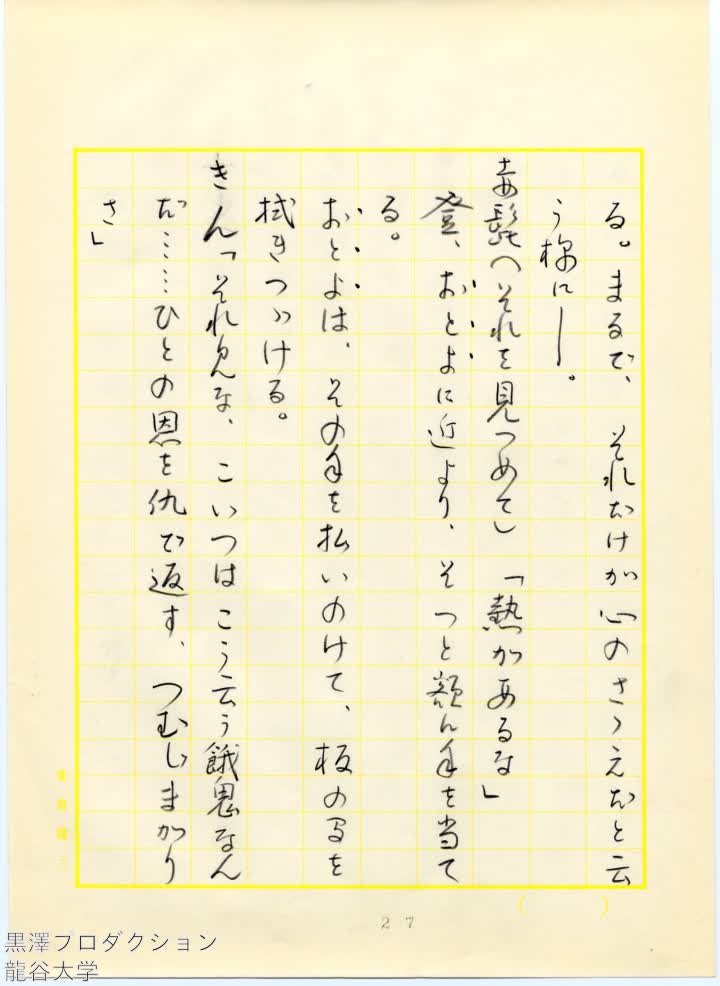 る。まるで、それだけが心のさゝえだと云
う様に――。
赤髭へそれを見つめて）「熱があるな」
登、おとよに近より、そっと額に手を当て
る。
おとよは、その手を払いのけて、板の間を
拭きつゞける。
きん「それ見な、こいつはこう云う餓鬼なん
だ……ひとの恩を仇で返す、つむじまがり
さ」
27
黒澤プロダクション
龍谷大学